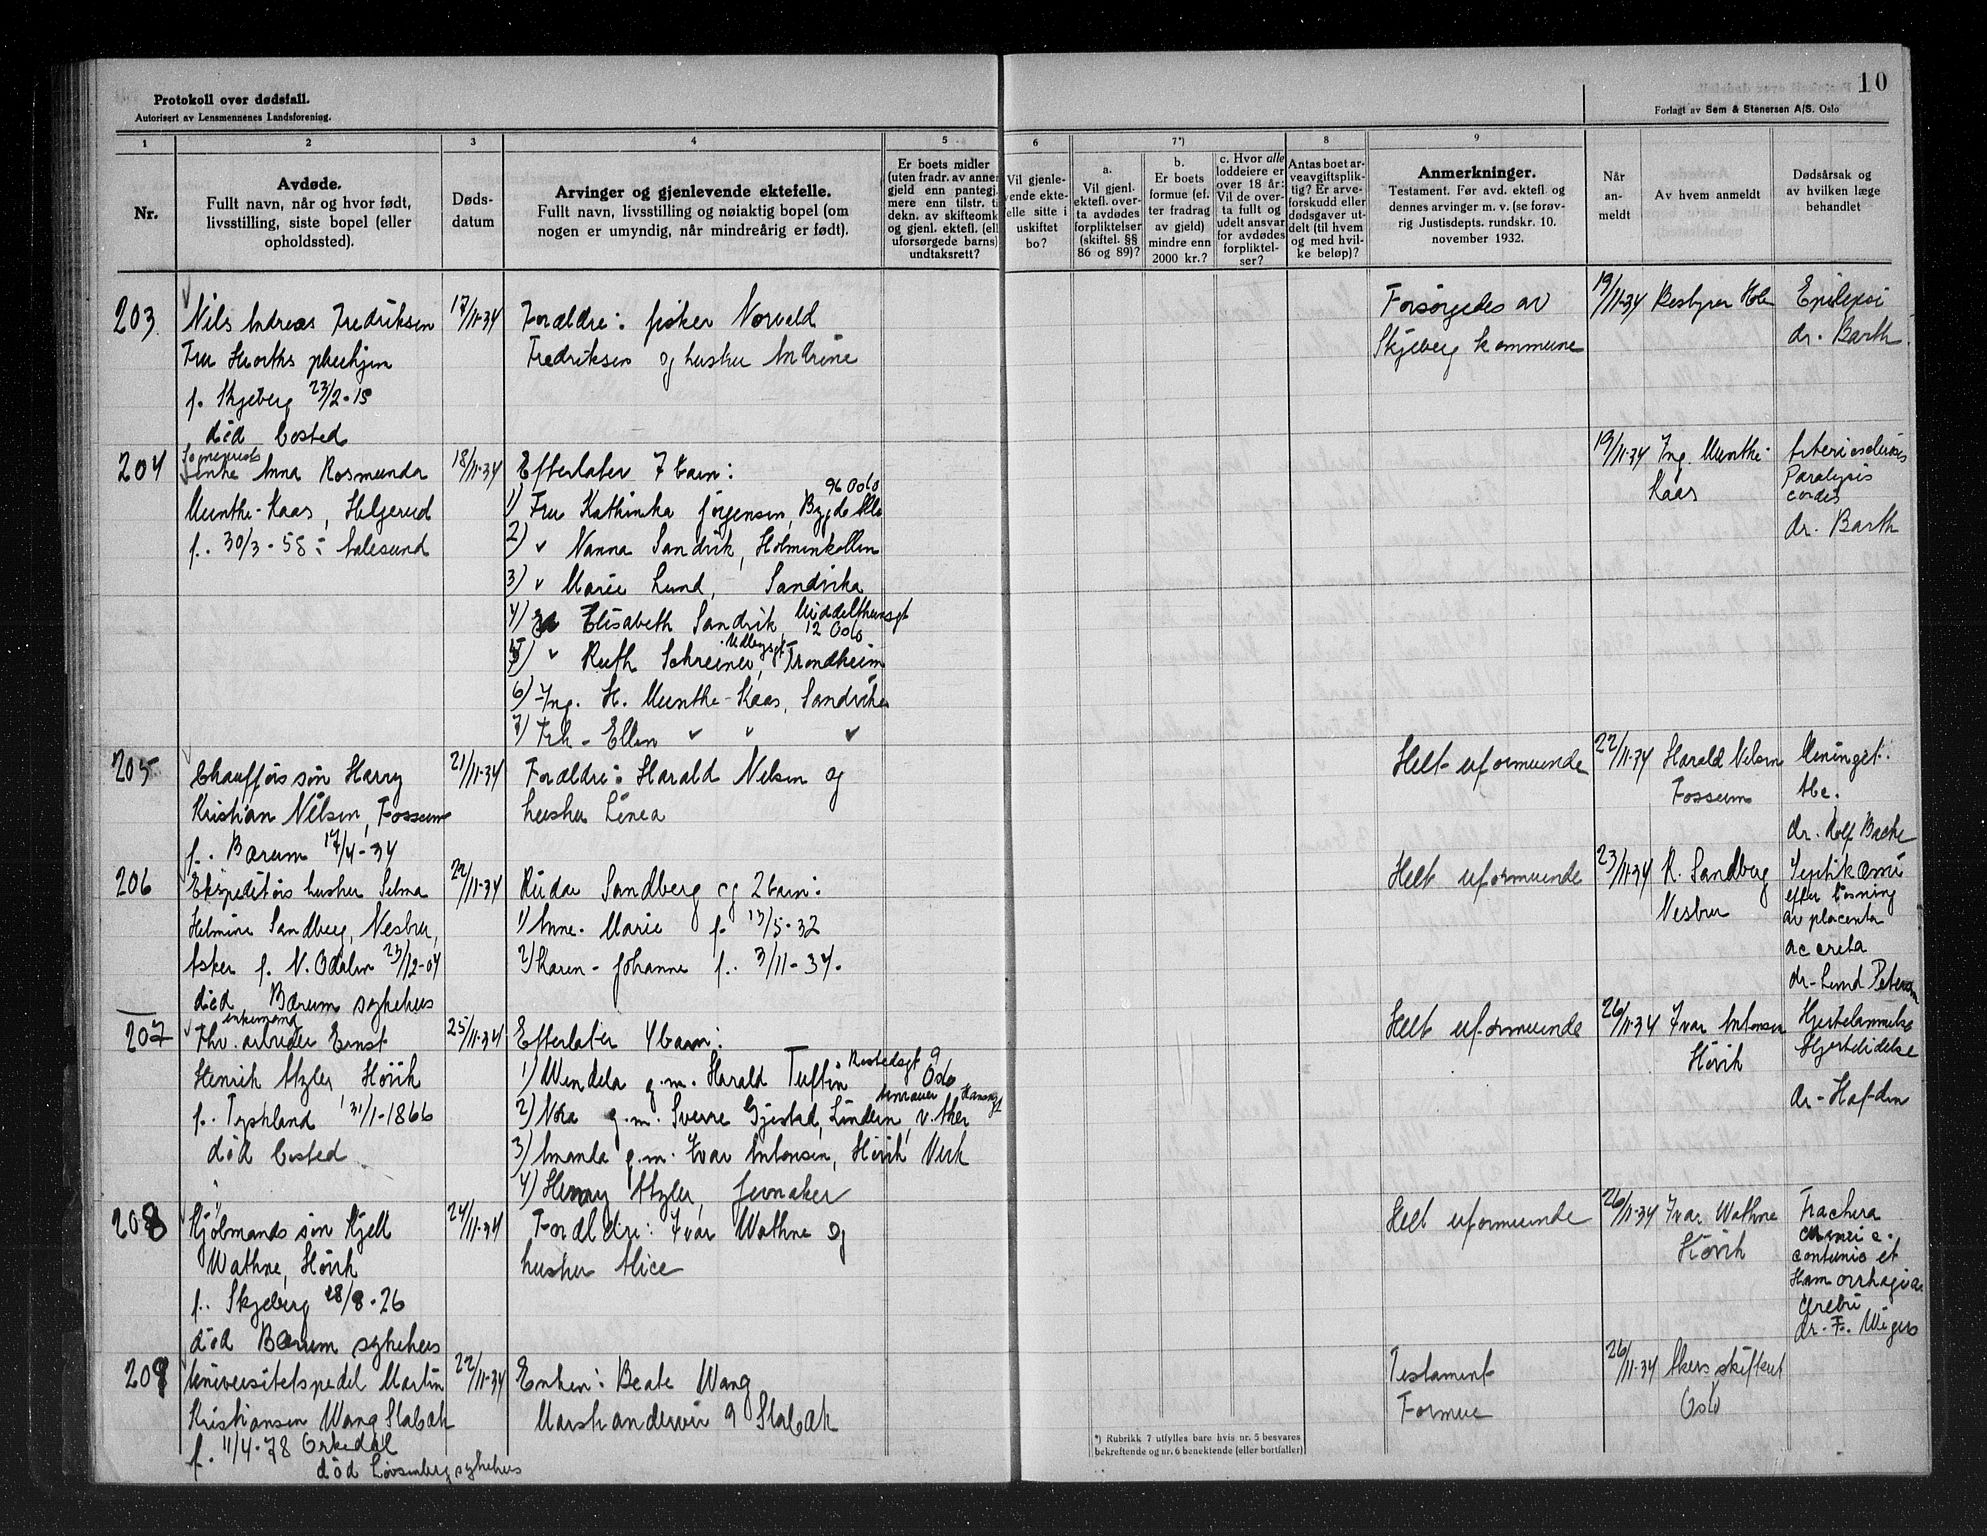 Protokoll over dødsfall.
Autorisert av Lensmennenes Landsforening.
10
Forlagt av Sem & Stenersen A/S. Oslo
1
2
3
4
5
6
7*)
8
9
Nr.
Avdøde.
Fullt navn, når og hvor født,
livsstilling, siste bopel (eller
opholdssted).
Døds-
datum
Arvinger og gjenlevende ektefelle.
Fullt navn, livsstilling og nøiaktig bopel (om
nogen er umyndig, når mindreårig er født).
Er boets midler
(uten fradr. av annen
gjeld enn pantegj.
mere enn tilstr. t
dekn. av skifteomk
og gjenl. ektef. (ell
uforsørgede barns)
undtaksrett?
Vil gjenle-
vende ekte-
elle sitte i
uskiftet
bo?
a.
Vil gjenl.
ektefl. over-
ta avdødes
forpliktelser
(skiftel. §§
86 og 89)?
b.
Er boets
formue (ef-
ter fradrag
av gjeld)
mindre enn
2000 kr.?
c. Hvor alle
loddeiere er
over 18 år:
Vil de over-
ta fullt og
udelt ansvar
for avdødes
forpliktel-
ser?
Antas boet ar-
veavgiftsplik-
tig? Er arve-
forskudd eller
dødsgaver ut-
delt (til hvem
og med hvil-
ke beløp)?
Anmerkninger.
Testament. Før avd. ektefl. og
dennes arvinger m. v. (se forøv-
rig Justisdepts. rundskr. 10.
november 1932.
Når
an-
meldt
Av hvem anmeldt
Dødsårsak og
av hvilken læge
behandlet
203
Nils Andreas Fredriksen
Fru Hjorths pleiehjem
f. Skjeberg 23/2-15
død bosted
17/11-34
Forældre: fisker Norvald
Fredriksen og hustru Andrine
Forsørgedes av
Skjeberg kommune
19/11-34
Bestyrer Holm
Epilepsi
dr. Barth.
204
enke Anna Rosmunda
Munthe-Kaas, Helgerud
f. 30/3-58 i Aalesund
18/11-34
Efterlater 7 barn:
1) Fru Kathinka Jørgensen, Bygdø Alle
96 Oslo
2) " Nanna Sandvik, Holmenkollen
3) " Marie Lund, Sandvika
4) Elisabeth Sandvik, Middelthunsgt
12 Oslo
5) " Ruth Schreiner, Trondheim
6) Ing. H. Munthe-Kaas, Sandvika
7) Frk. Ellen " " "
19/11-34
Ing. Munthe-
Kaas
Arteriosclerosis
Paralysis
cordis
dr. Barth
205
Chaufførs søn Harry
Kristian Nilsen, Fossum
f. Bærum 17/4-34
21/11-34
Forældre: Harald Nilsen og
hustru Linea
Helt uformuende
22/11-34
Harald Nilsen
Fossum
Meningit.
tbc.
dr. Rolf Bache
206
Ekspeditørs hustru Selma
Helmine Sandberg, Nesbru,
Asker f. N. Odalen 23/12-04
død Bærum sykehus
22/11-34
Reidar Sandberg og 2 barn:
1) Anne-Marie f. 13/5-32
2) Karen-Johanne f. 3/11-34.
Helt uformuende
23/11-34
R. Sandberg
Nesbru
Septikæmi
efter løsning
av placenta
accreta
dr. Lund Petersen
207
enkemand
Fhv. arbeider Ernst
Henrik Atzler Høvik
f. Tyskland 31/1-1866
død bosted
25/11-34
Efterlater 4 barn:
1) Wendela g.m. Harald Tuftin Oslo
2) Nora g.m. Sverre Gjestad, Lindern, v. Aker
3) Amanda g.m. Ivar Antonsen, Høvik Verk
4) Henry Atzler, Jevnaker
Helt uformuende
26/11-34
Ivar Antonsen
Høvik
Hjertelammelse
Hjertelidelse
dr. Hafden
208
Sjømands søn Kjell
Wathne, Høvik
f. Skjeberg 28/8-26
død Bærum sykehus
24/11-34
Forældre: Ivar Wathne og
hustru Alice
Helt uformuende
26/11-34
Ivar Wathne
Høvik
Fractura
cranii c.
contusio et
Hæmorrhagia
cerebri
209
Universitetspedel Martin
Kristiansen Wang Stabæk
f. 11/4-78 Orkedal
død Lovisenberg sykehus
22/11-34
Enken: Beate Wang
9 Stabæk
Testament
Formue
26/11-34
Akers skifterett
Oslo
*) Rubrikk 7 utfylles bare hvis nr. 5 besvares
bekreftende og nr. 6 benektende (eller bortfaller)